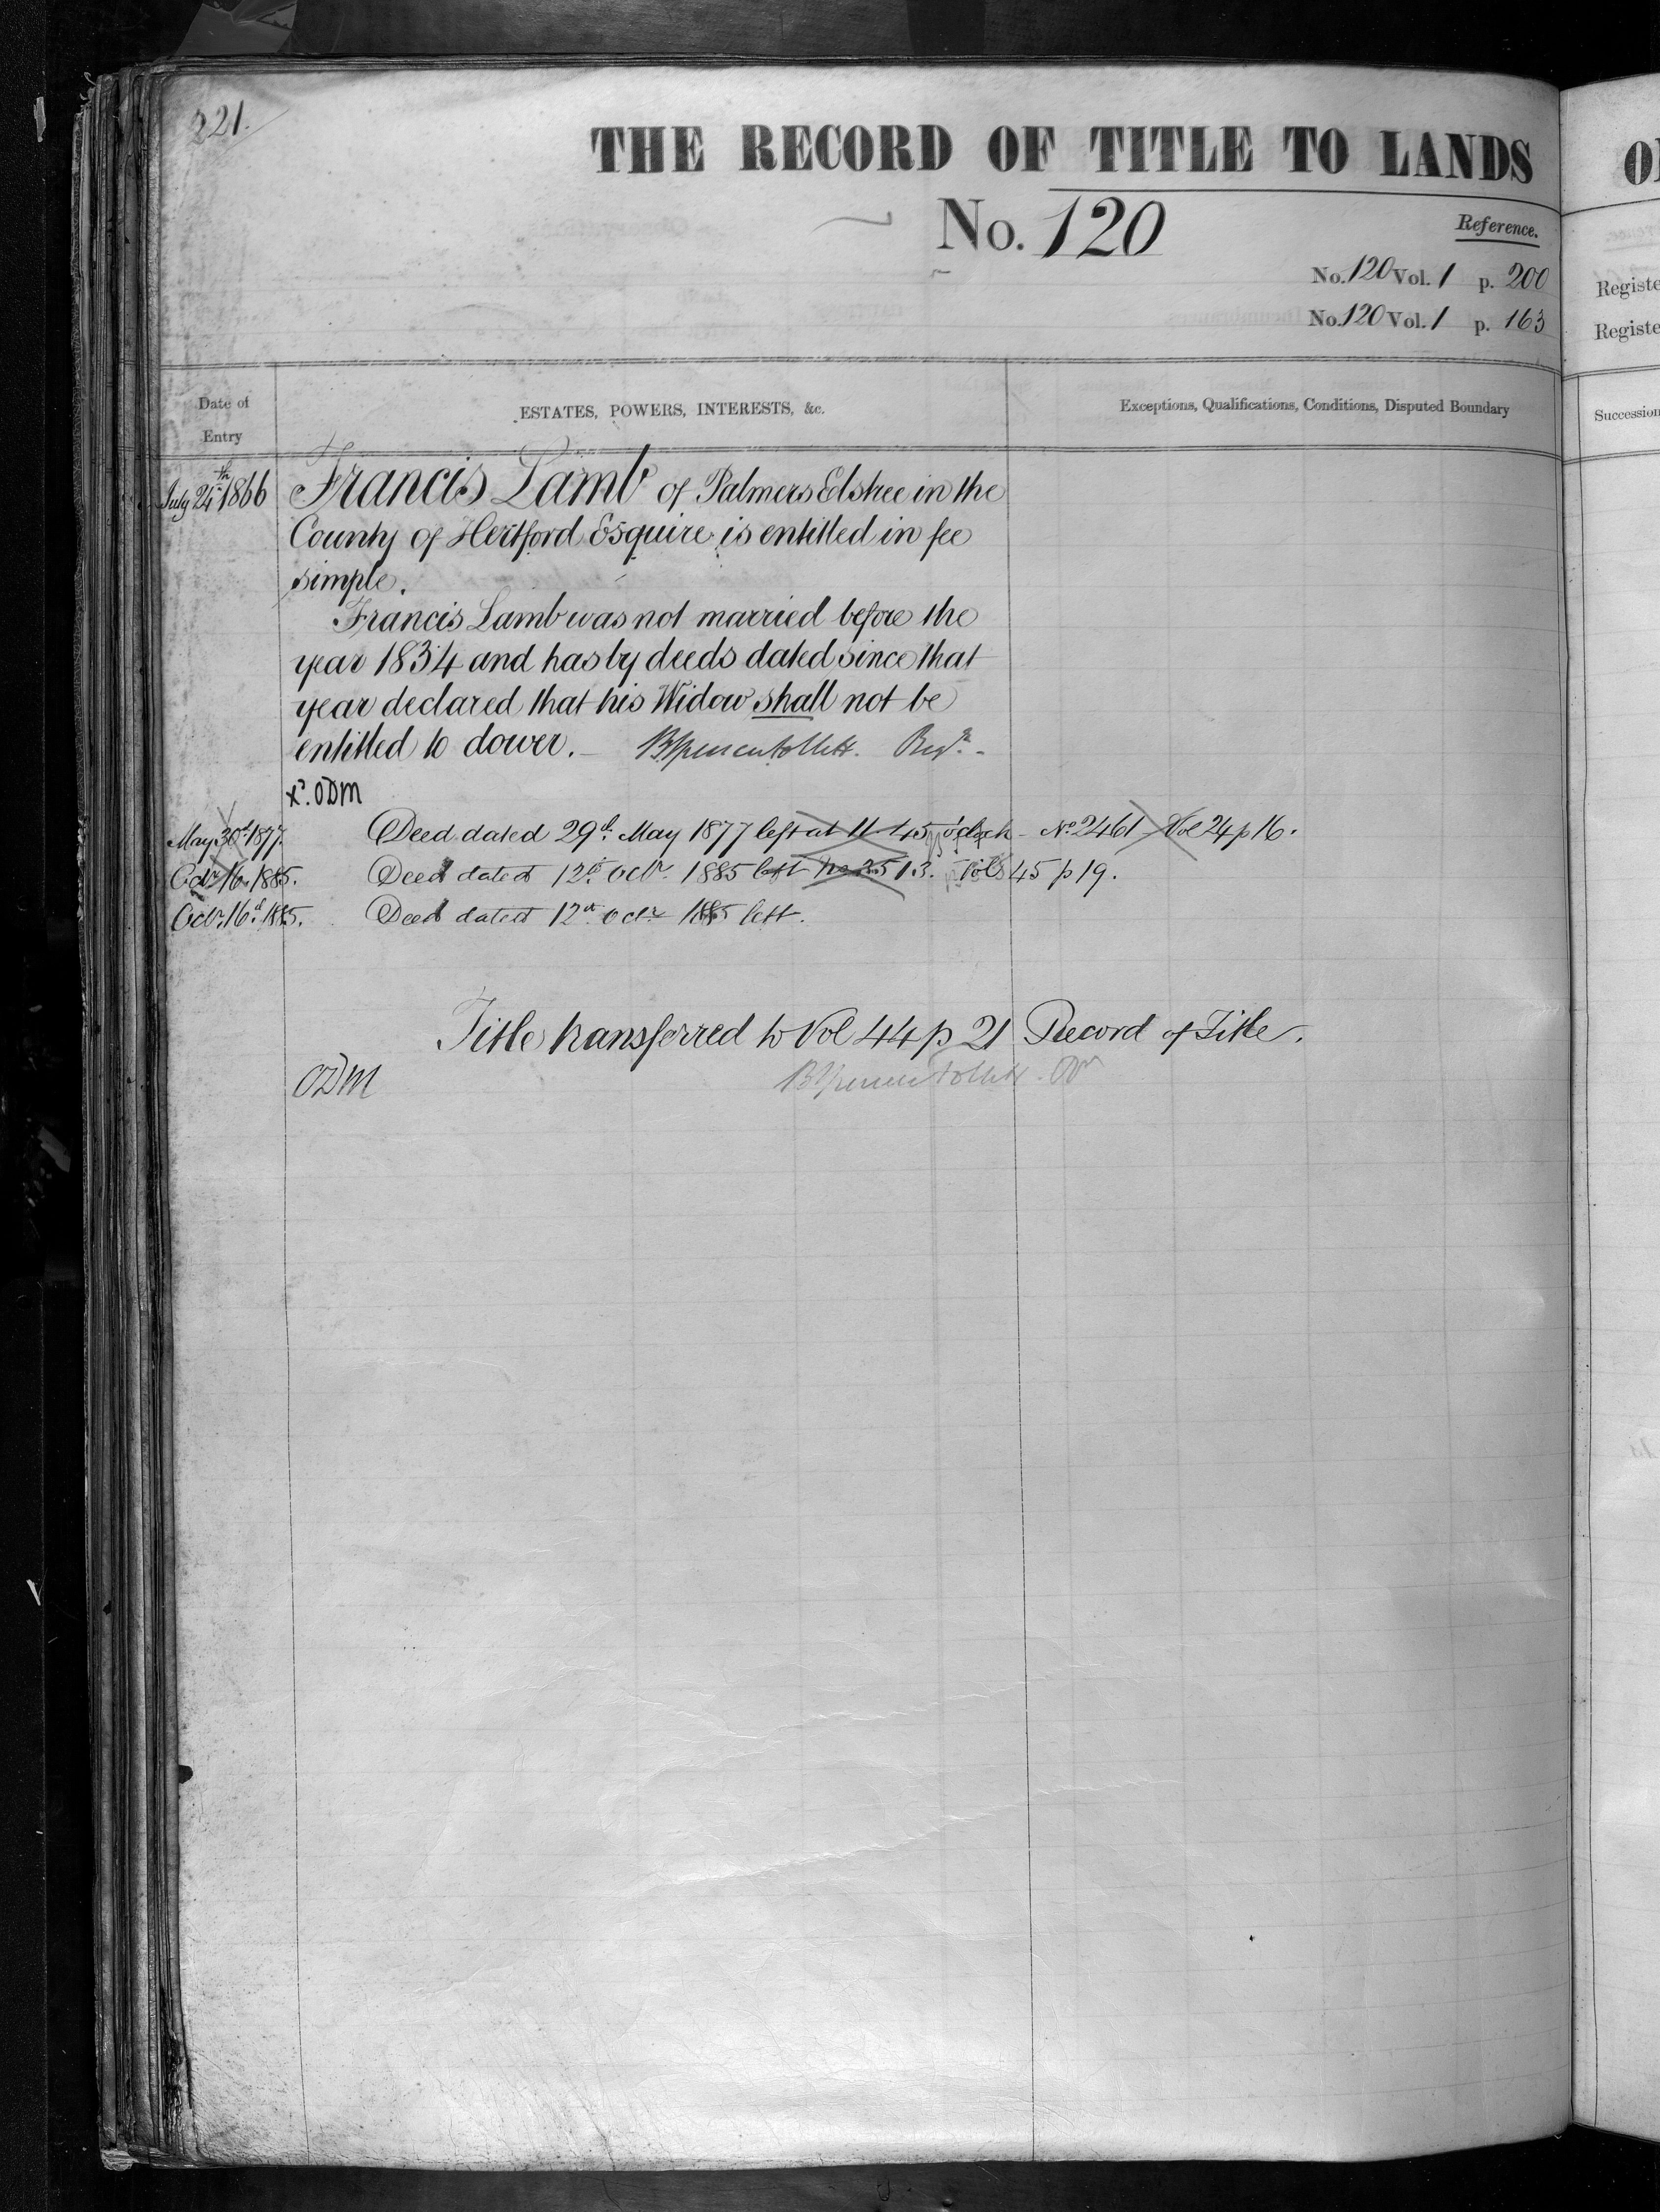 221.
THE RECORD OF TITLE TO LANDS
No. 120
Reference.
No. 120 Vol. 1 p. 200
No. 120 Vol. 1 p. 163
Registe
Registe
Date of Entry
ESTATES, POWERS, INTERESTS, &c.
Exceptions, Qualifications, Conditions, Disputed Boundary
Succession
July 24th 1866 Francis Lamb of Palmers Elstree in the
County of Hertford Esquire is entitled in fee
simple.
Francis Lamb was not married before the
year 1834 and has by deeds dated since that
year declared that his Widow shall not be
entitled to dower. — B Spencer Follett. Regr. -
xd. ODM
May 30th 1877. Deed dated 29th May 1877 left at 11.45 o'clock - No 2461 Vol 24 p 16.
Octr 16 1885. Deed dated 12th Octr. 1885 left No 2513. Vol 45 p 19.
Octr. 16th 1885. Deed dated 12th Octr 1885 left.
Title transferred to Vol 44 p 21 Record of Title.
ODM B Spencer Follett.